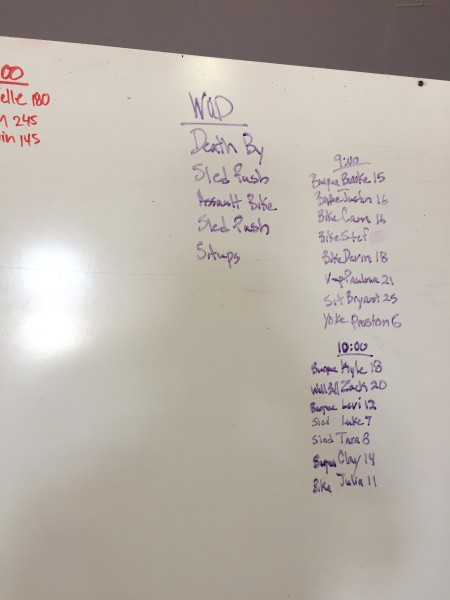 00
elle 180
245
in 145
WOD
Death By
Sled Push
Assault Bike
Sled Push
Situps
9:00
Burpee Brooke 15
Justin 16
Bike Cam 16
Bike Stef
Bike Devin 18
V-up Paulina 21
Sit Bryant 25
Yoke Preston 6
10:00
Burpee Kyle 18
Wall Ball Zack 20
Burpee Levi 12
Sled Luke 7
Sled Tara 8
Burpee Clay 14
Bike Julia 11